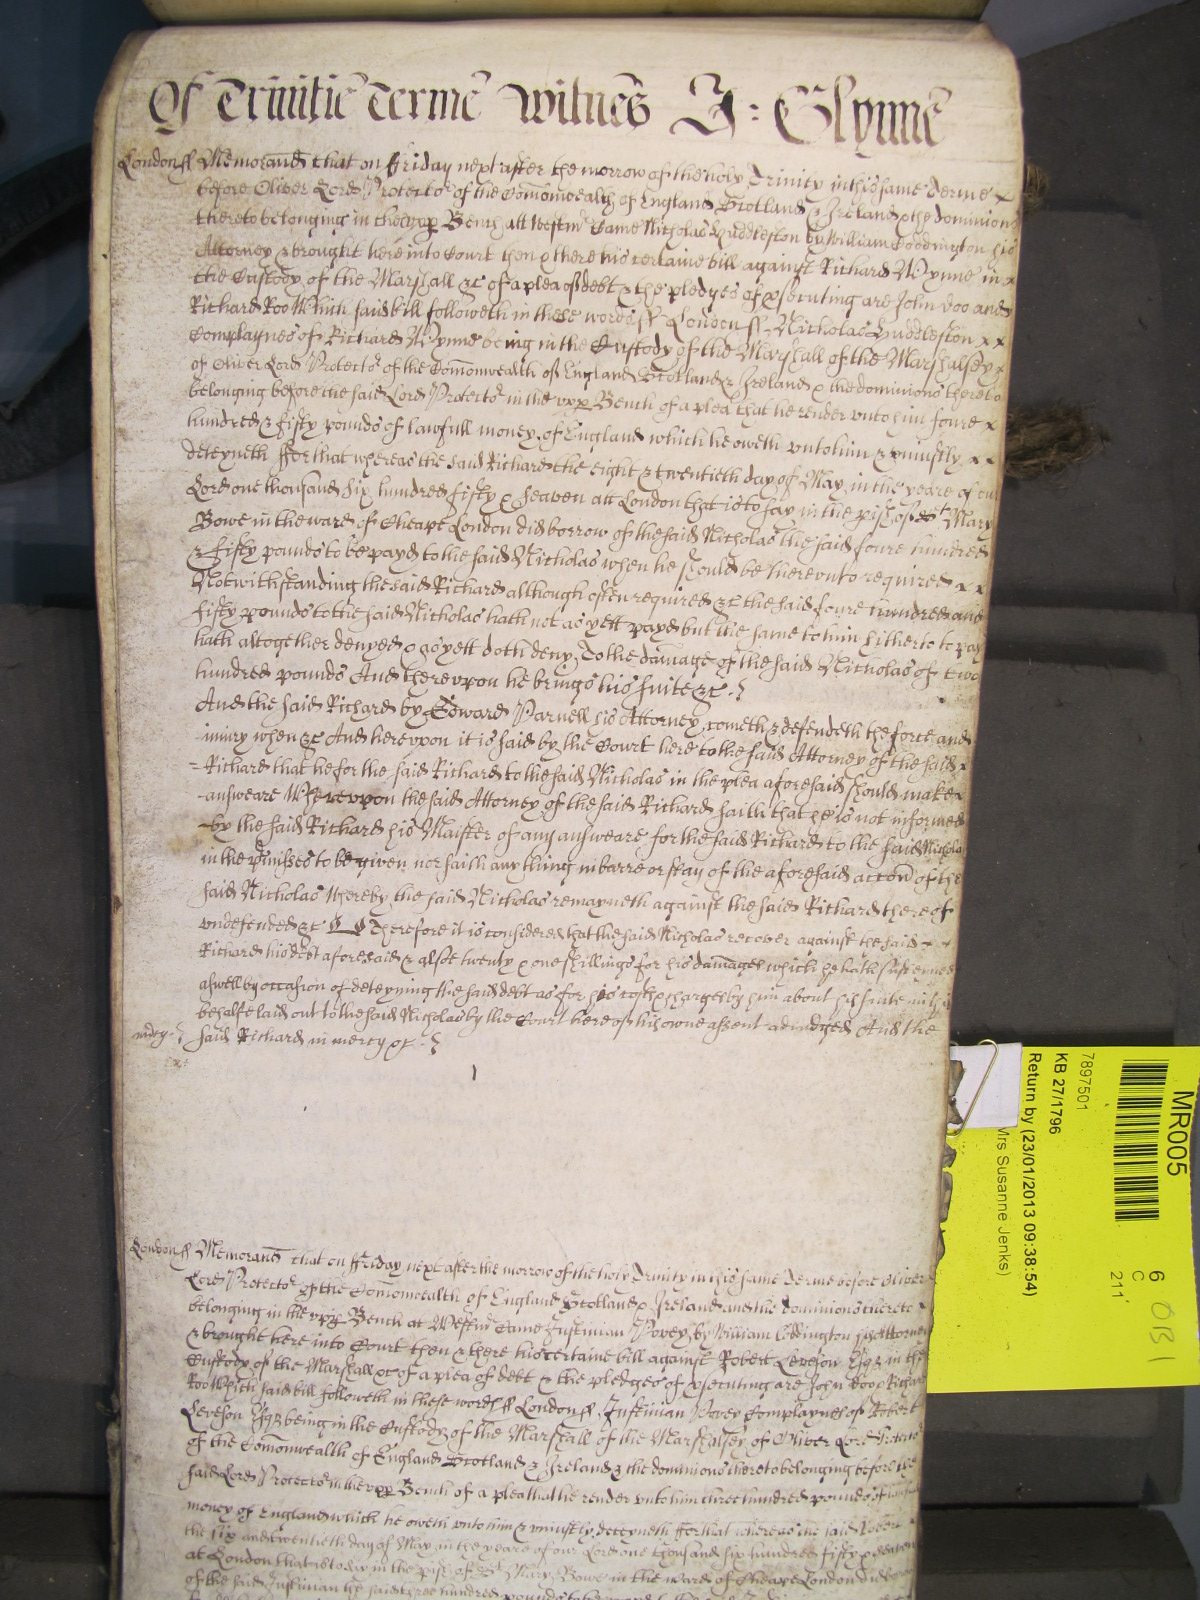 Of Trinitie Terme Witnes J: Glynne
London ss Memorand that on Friday next after the morrow of the holy Trinity in this same Terme
before Oliver Lord Protector of the Comonwealth of England Scotland & Ireland & the dominions
thereto belonging in the vpp Bench att Westmr Came Nicholas Huddleston by William Coddington his
Attorney & brought here into Court then & there his certaine bill against Richard Wynne in
the Custody of the Marshall &c of a plea of debt & the pledges of psecuting are John Doo and
Richard Roo Which said bill followeth in these words ss London ss Nicholas Huddleston
Complaynes of Richard Wynne being in the Custody of the Marshall of the Marshalsey
of Oliver Lord Protector of the Comonwealth of England Scotland & Ireland & the dominions thereto
belonging before the said Lord Protector in the vpp Bench of a plea that he render vnto him foure
hundred & fifty pounds of lawfull money of England which he oweth vnto him & vniustly
deteyneth ffor that whereas the said Richard the eight & twentieth day of May in the yeare of our
Lord one thousand six hundred fifty & seaven att London that is to say in the pish of St Mary
Bowe in the ward of Cheape London did borrow of the said Nicholas the said foure hundred
& fifty pounds to be payd to the said Nicholas when he should be therevnto required
Notwithstanding the said Richard although often required &c the said foure hundred and
fifty pounds to the said Nicholas hath not as yett payd but the same to him hitherto to pay
hath altogether denyed & as yett doth deny To the damage of the said Nicholas of two
hundred pounds And therevpon he brings his suite &c
And the said Richard by Edward Parnell his Attorney cometh & defendeth the force and
iniury when &c And herevpon it is said by the Court here to the said Attorney of the said
Richard that he for the said Richard to the said Nicholas in the plea aforesaid should make
answeare Wherevpon the said Attorney of the said Richard saith that he is not informed
by the said Richard his Maister of any answeare for the said Richard to the said Nichola
in the pmisses to be given nor saith any thing in barre or stay of the aforesaid accon of the
said Nicholas whereby the said Nicholas remayneth against the said Richard thereof
vndefended &c Therefore it is considered that the said Nicholas recover against the said
Richard his debt aforesaid & alsoe twenty & one shillings for his damages which he hath susteyned
aswell by occasion of deteyning the said debt as for his costs & charges by him about his suite in this
behalfe laid out to the said Nicholas by the Court here of his owne assent adiudged And the
mercy said Richard in mercy &c
London ss Memorand that on ffriday next after the morrow of the holy Trinity in this same Terme before Oliver
Lord Protector of the Comonwealth of England Scotland & Ireland and the dominions thereto
belonging in the vpp Bench at Westmr Came Justinian Povey by William Coddington his Attorney
& brought here into Court then & there his certaine bill against Robert Leveson Esqr in the
Custody of the Marshall &c of a plea of debt & the pledges of psecuting are John Doo & Richard
Roo Which said bill followeth in these words ss London ss Justinian Povey Complaynes of Robert
Leveson Esqr being in the Custody of the Marshall of the Marshalsey of Oliver Lord Protector
of the Comonwealth of England Scotland & Ireland & the dominions thereto belonging before the
said Lord Protector in the vpp Bench of a plea that he render vnto him three hundred pounds of lawfull
money of England which he oweth vnto him & vniustly deteyneth ffor that whereas the said Robert
the six and twentieth day of May in the yeare of our Lord one thousand six hundred fifty & seaven
at London that is to say in the pish of St Mary Bowe in the ward of Cheape London did borrow
of the said Justinian the said three hundred pounds
MR005
6
C
211
OBI
7897501
KB 27/1796
Return by (23/01/2013 09:38:54)
Mrs Susanne Jenks)